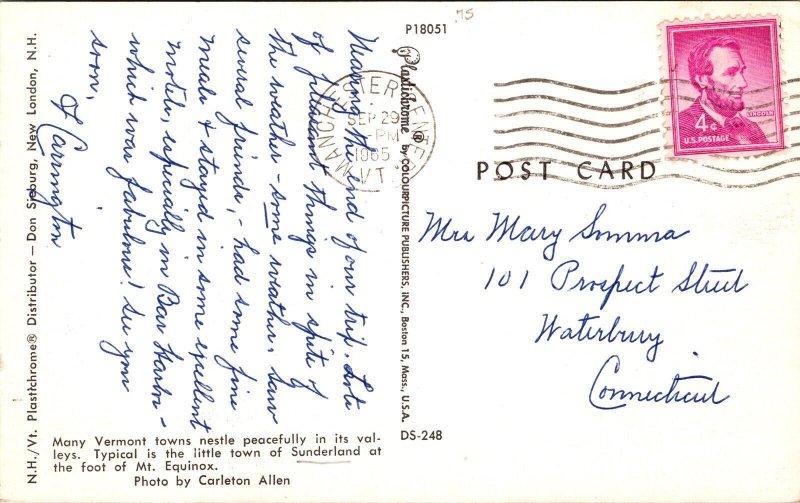 P18051
75
Nearing the end of our trip. Lots
of pleasant things in spite of
the weather - some weather. Saw
several friends, - had some fine
meals & stayed in some exellent
motels, especially in Bar Harbor -
which was fabulous! See you
soon,
F Carrington
MANCHESTER CENTER
SEP 29
PM
1965
VT.
LINCOLN
4¢
U.S. POSTAGE
POST CARD
Mrs Mary Somma
101 Prospect Street
Waterbury
Connecticut
Plastichrome ® by COLOURPICTURE PUBLISHERS, INC., Boston 15, Mass., U.S.A.
N.H./Vt. Plastichrome® Distributor — Don Sieburg, New London, N.H.
Many Vermont towns nestle peacefully in its val-
leys. Typical is the little town of Sunderland at
the foot of Mt. Equinox.
Photo by Carleton Allen
DS-248